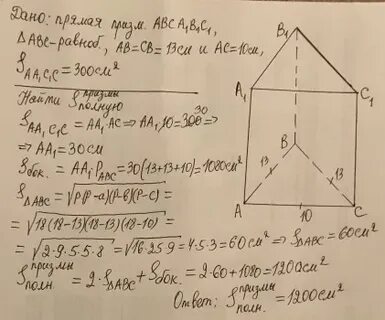 Дано: прямая призм. ABCA₁B₁C₁,
ΔABC-равноб., AB=CB=13см и AC=10см,
S AA₁C₁C = 300см²
Найти S призмы полную
S AA₁C₁C = AA₁·AC ⇒ AA₁·10=300 30 ⇒
⇒ AA₁=30см
Sбок. = AA₁·P ABC = 30(13+13+10)=1080см²
S ΔABC = √p(p-a)(p-b)(p-c) =
= √18(18-13)(18-13)(18-10) =
= √2·9·5·5·8 = √16·25·9 = 4·5·3=60см² ⇒ S ABC=60см²
S призмы полн. = 2·S ΔABC + Sбок. = 2·60+1080=1200см²
Ответ: S призмы полн. = 1200см²
B₁
A₁
C₁
B
13
13
A
C
10